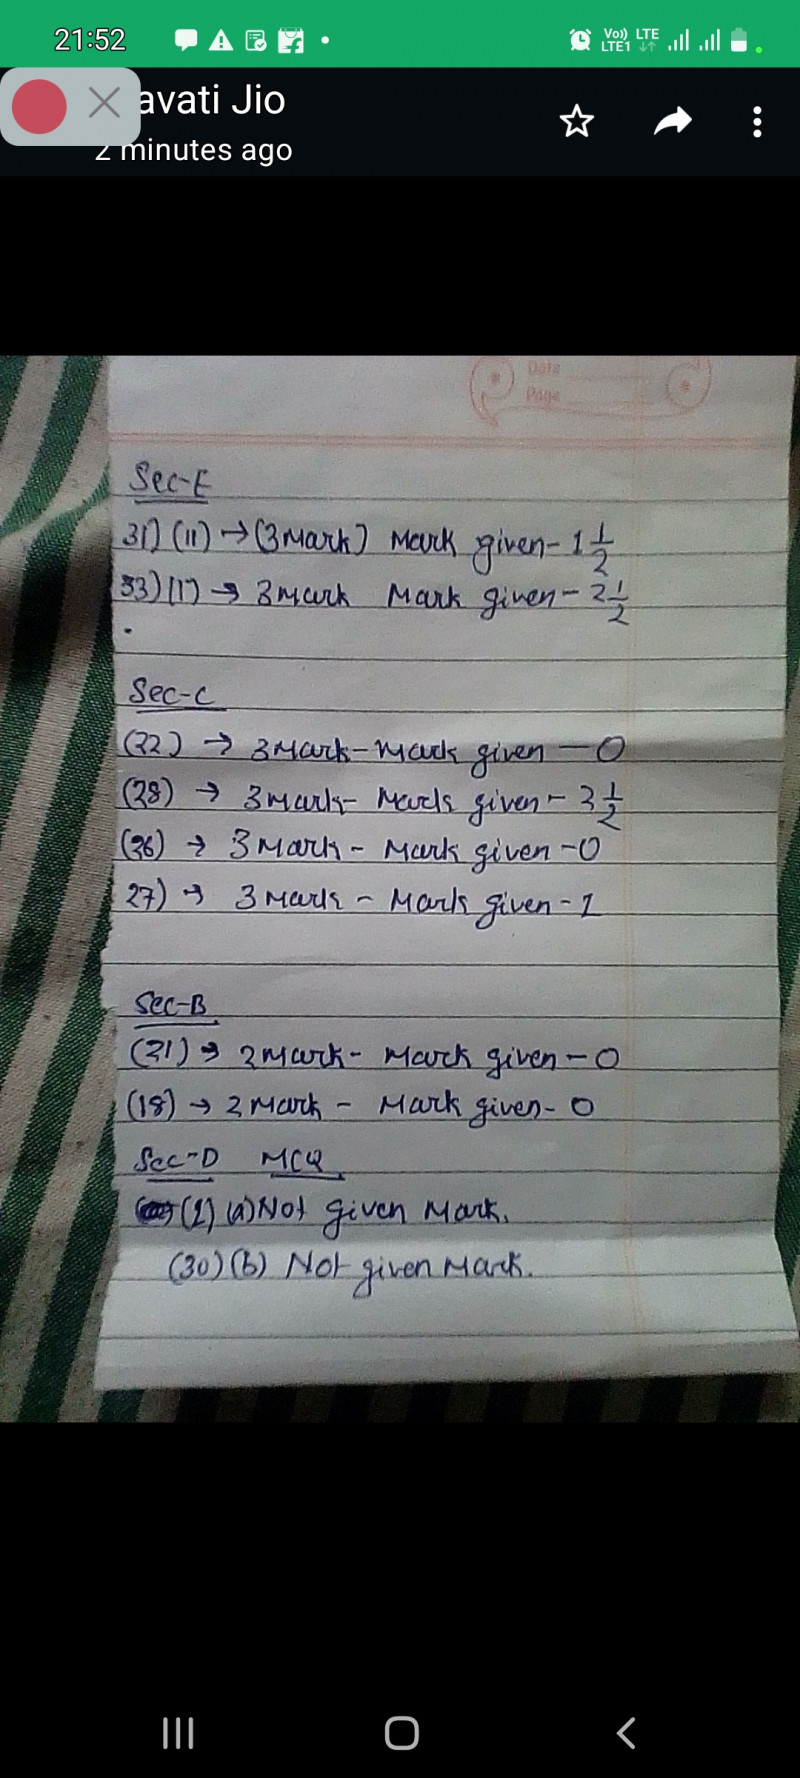 21:52
Vo)) LTE
LTE1
avati Jio
2 minutes ago
Date
Page
Sec-E
31) (11) → (3 Mark) Mark given - 1 1/2
33) (1) → 3 mark Mark given - 2 1/2
Sec-C
(22) → 3 Mark - Mark given - 0
(28) → 3 mark - Mark given - 2 1/2
(26) → 3 Mark - Mark given - 0
27) → 3 Mark - Mark given - 1
Sec-B
(21) → 2 Mark - Mark given - 0
(18) → 2 Mark - Mark given - 0
Sec-D MCQ
(1) (a) Not given Mark.
(30) (b) Not given Mark.